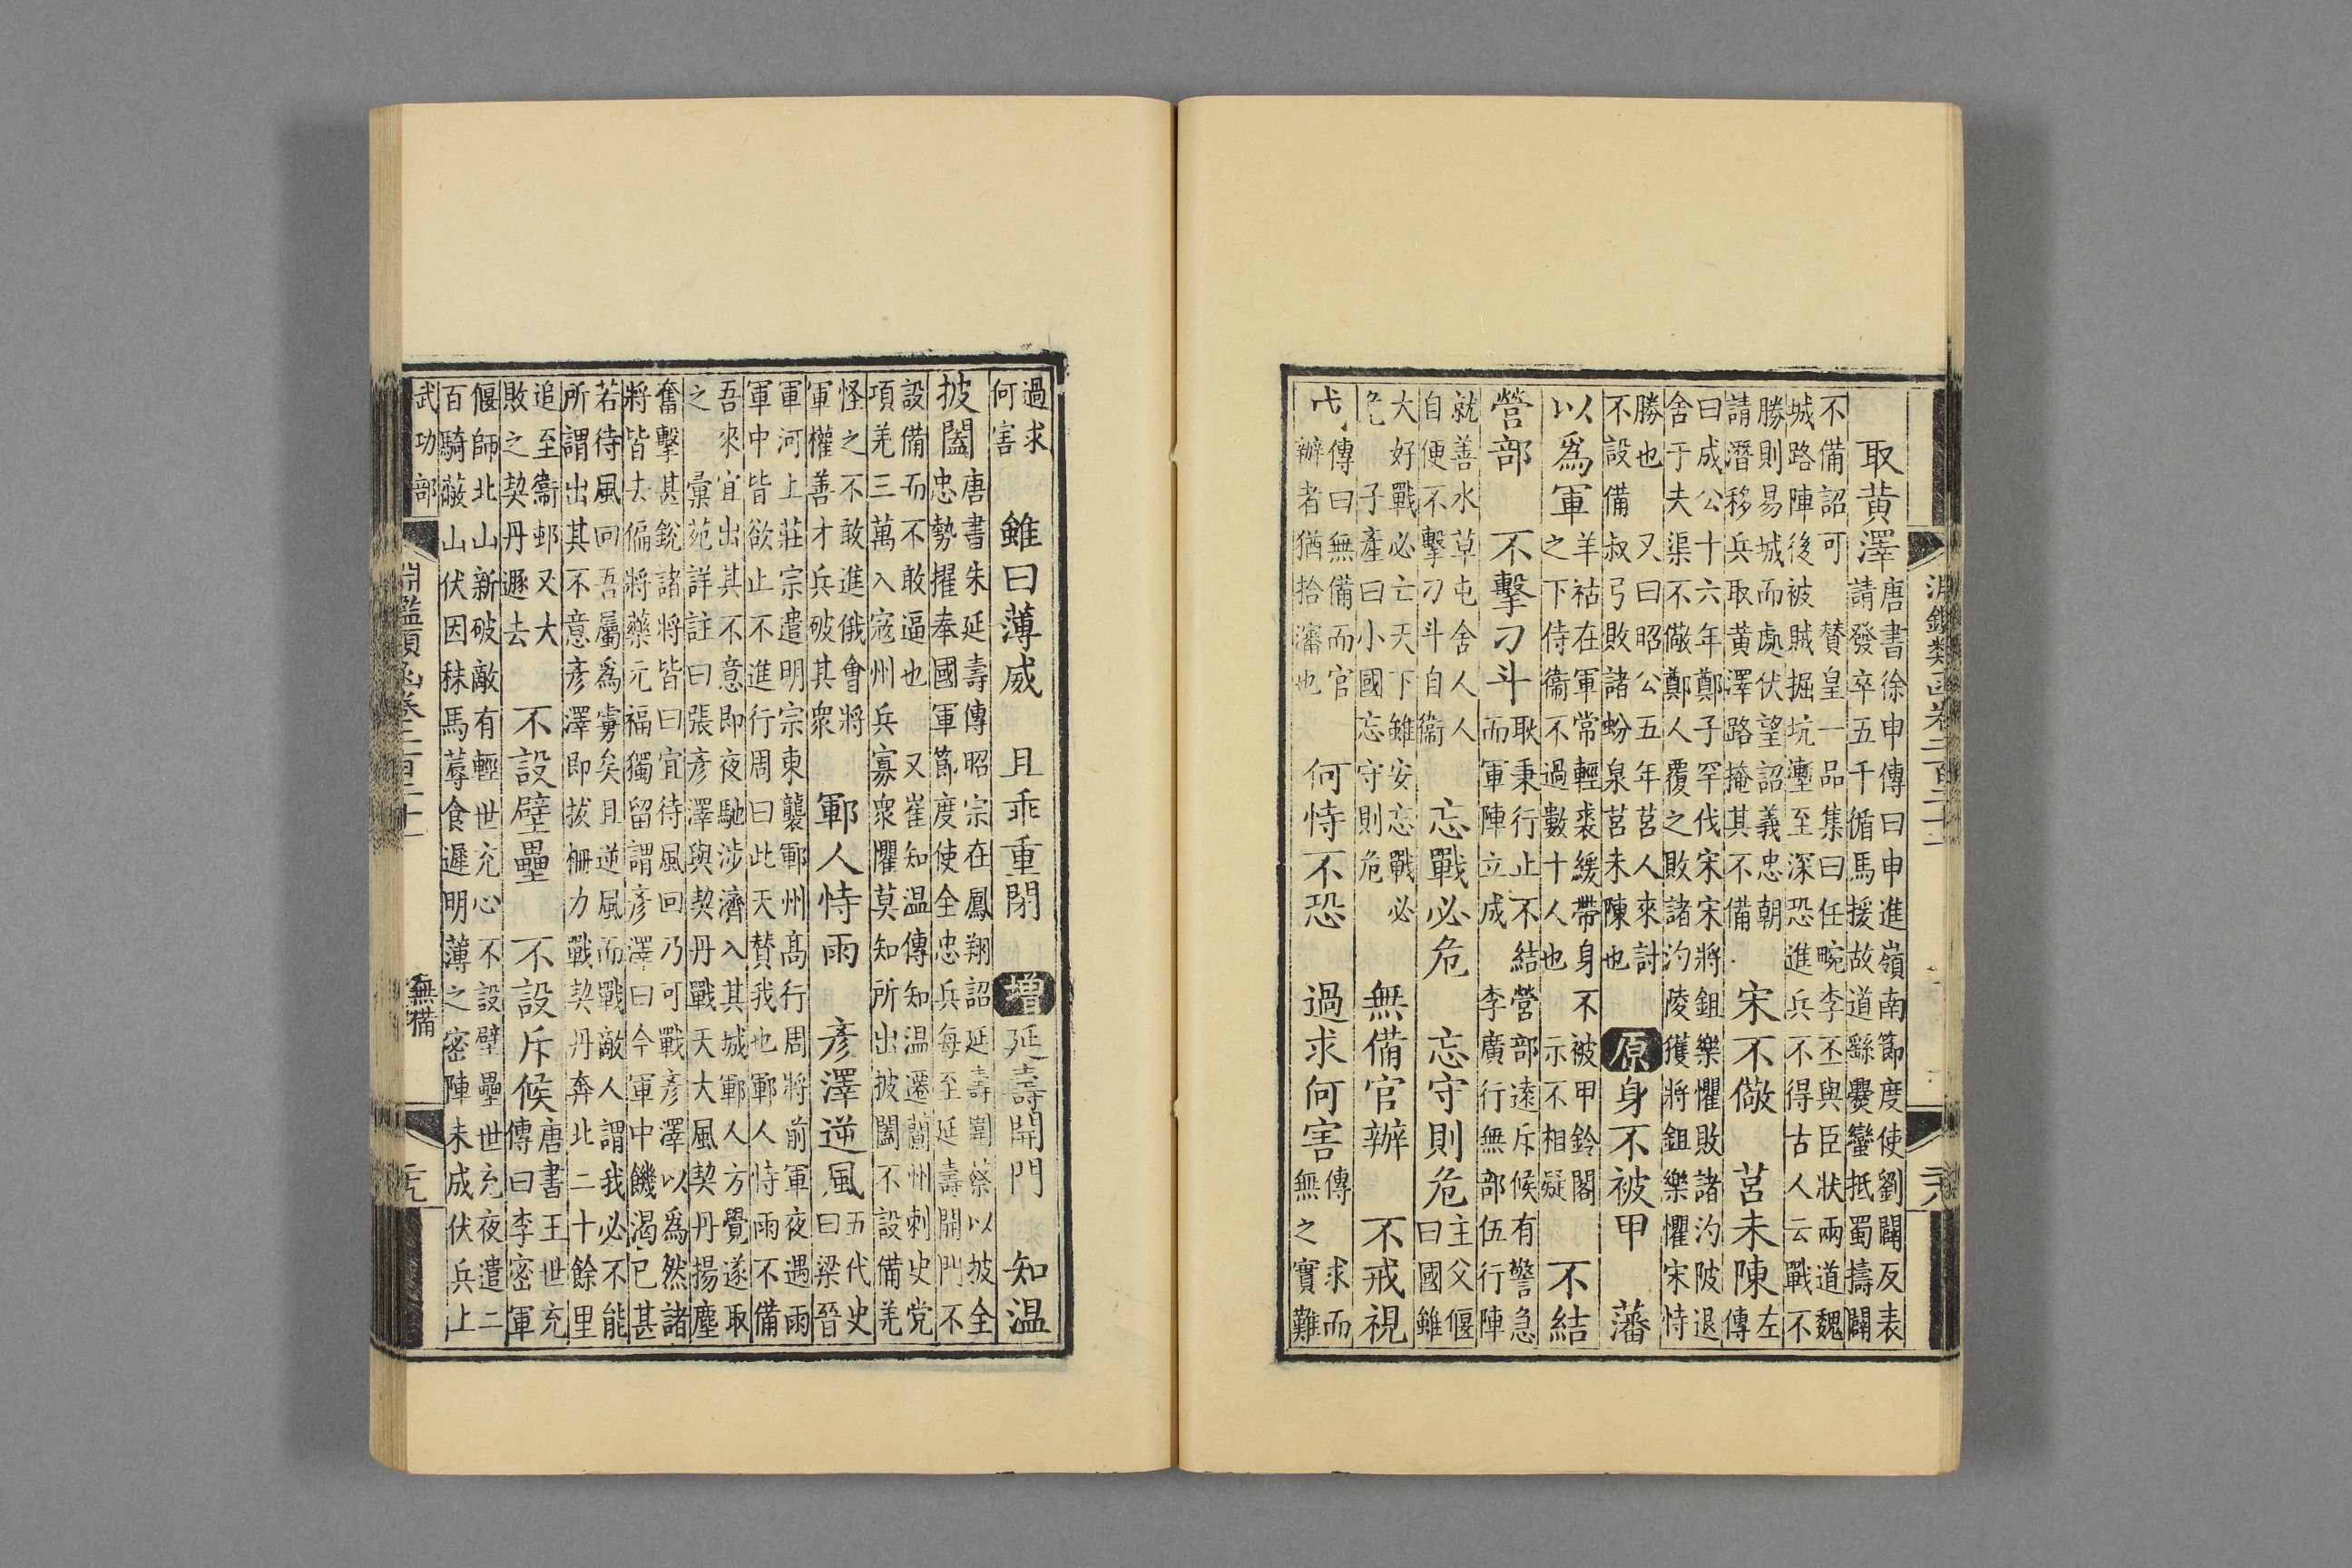 淵鑑類函卷二百二十一
取黃澤
唐書徐申傳曰申進嶺南節度使劉闢反表
請發卒五千循馬援故道繇爨蠻抵蜀擣闢
不備詔可 贊皇一品集曰任畹李丕與臣狀兩道魏
城路陣後被賊掘坑塹至深恐進兵不得古人云戰不
勝則易城而處伏望詔義忠朝
請潛移兵取黃澤路掩其不備
宋不儆 莒未陳
左
傳
曰成公十六年鄭子罕伐宋宋將鉏樂懼敗諸汋陂退
舍于夫渠不儆鄭人覆之敗諸汋陵獲將鉏樂懼宋恃
勝也 又曰昭公五年莒人來討
不設備叔弓敗諸蚡泉莒未陳也
原 身不被甲 藩
以爲軍
羊祜在軍常輕裘緩帶身不被甲鈴閣
之下侍衞不過數十人也 示不相疑
不結
營部 不擊刁斗
耿秉行止不結營部遠斥候有警急
而軍陣立成 李廣行無部伍行陣
就善水草屯舍人人
自便不擊刁斗自衞
忘戰必危 忘守則危
主父偃
曰國雖
大好戰必亡天下雖安忘戰必
危 子產曰小國忘守則危
無備官辦 不戒視
成
傳曰無備而官
辦者猶拾瀋也
何恃不恐 過求何害
傳 求而
無之實難
過求
何害
雖曰薄威 且乖重閉 增 延壽開門 知温
披闔
唐書朱延壽傳昭宗在鳳翔詔延壽圍蔡以披全
忠勢擢奉國軍節度使全忠兵每至延壽開門不
設備而不敢逼也 又崔知温傳知温遷蘭州刺史党
項羌三萬入寇州兵寡衆懼莫知所出披闔不設備羌
怪之不敢進俄會將
軍權善才兵破其衆
鄆人恃雨 彥澤逆風
五代史
曰梁晉
軍河上莊宗遣明宗東襲鄆州高行周將前軍夜遇雨
軍中皆欲止不進行周曰此天贊我也鄆人恃雨不備
吾來宜出其不意即夜馳涉濟入其城鄆人方覺遂取
之 彙苑詳註曰張彥澤與契丹戰天大風契丹揚塵
奮擊甚銳諸將皆曰宜待風回乃可戰彥澤以爲然諸
將皆去偏將藥元福獨留謂彥澤曰今軍中饑渴已甚
若待風回吾屬爲虜矣且逆風而戰敵人謂我必不能
所謂出其不意彥澤即拔栅力戰契丹奔北二十餘里
追至衞邨又大
敗之契丹遯去
不設壁壘 不設斥候
唐書王世充
傳曰李密軍
偃師北山新破敵有輕世充心不設壁壘世充夜遣二
百騎蔽山伏因秣馬蓐食遲明薄之密陣未成伏兵上
武功部 淵鑑類函卷二百二十一 無備